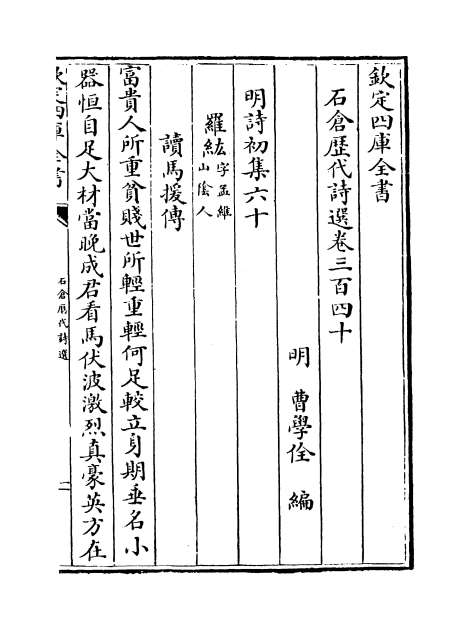 欽定四庫全書
石倉歷代詩選卷三百四十
明 曹學佺 編
明詩初集六十
羅紘字孟維山陰人
讀馬援傳
富貴人所重貧賤世所輕重輕何足較立身期垂名小
器恒自足大材當晚成君看馬伏波激烈真豪英方在
欽定四庫全書
石倉歷代詩選
一